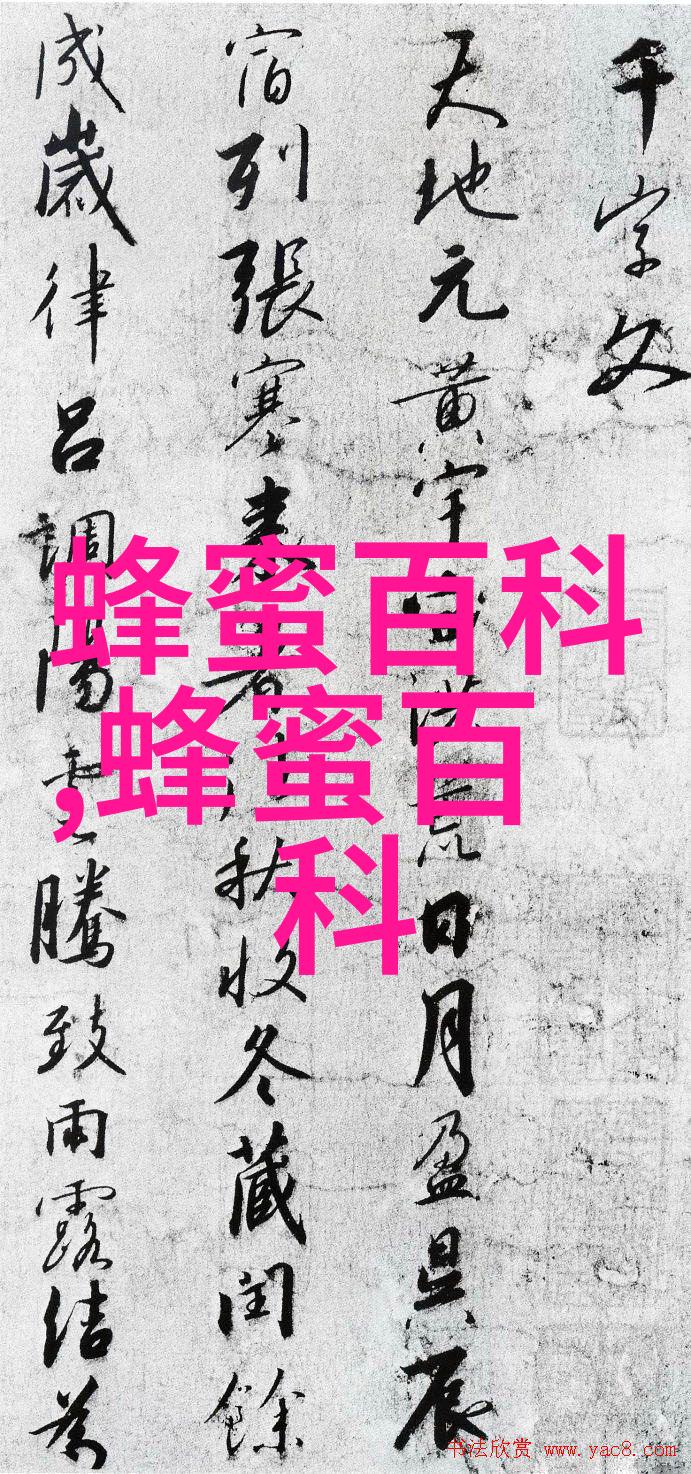 千字文
天地元黄宇宙洪荒日月盈昃辰
宿列張寒來暑秋收冬蔵閏餘
成歲律呂調陽雲騰致雨露結為
蜂蜜百科
,蜂蜜百
科
书法欣赏 www.yac8.com